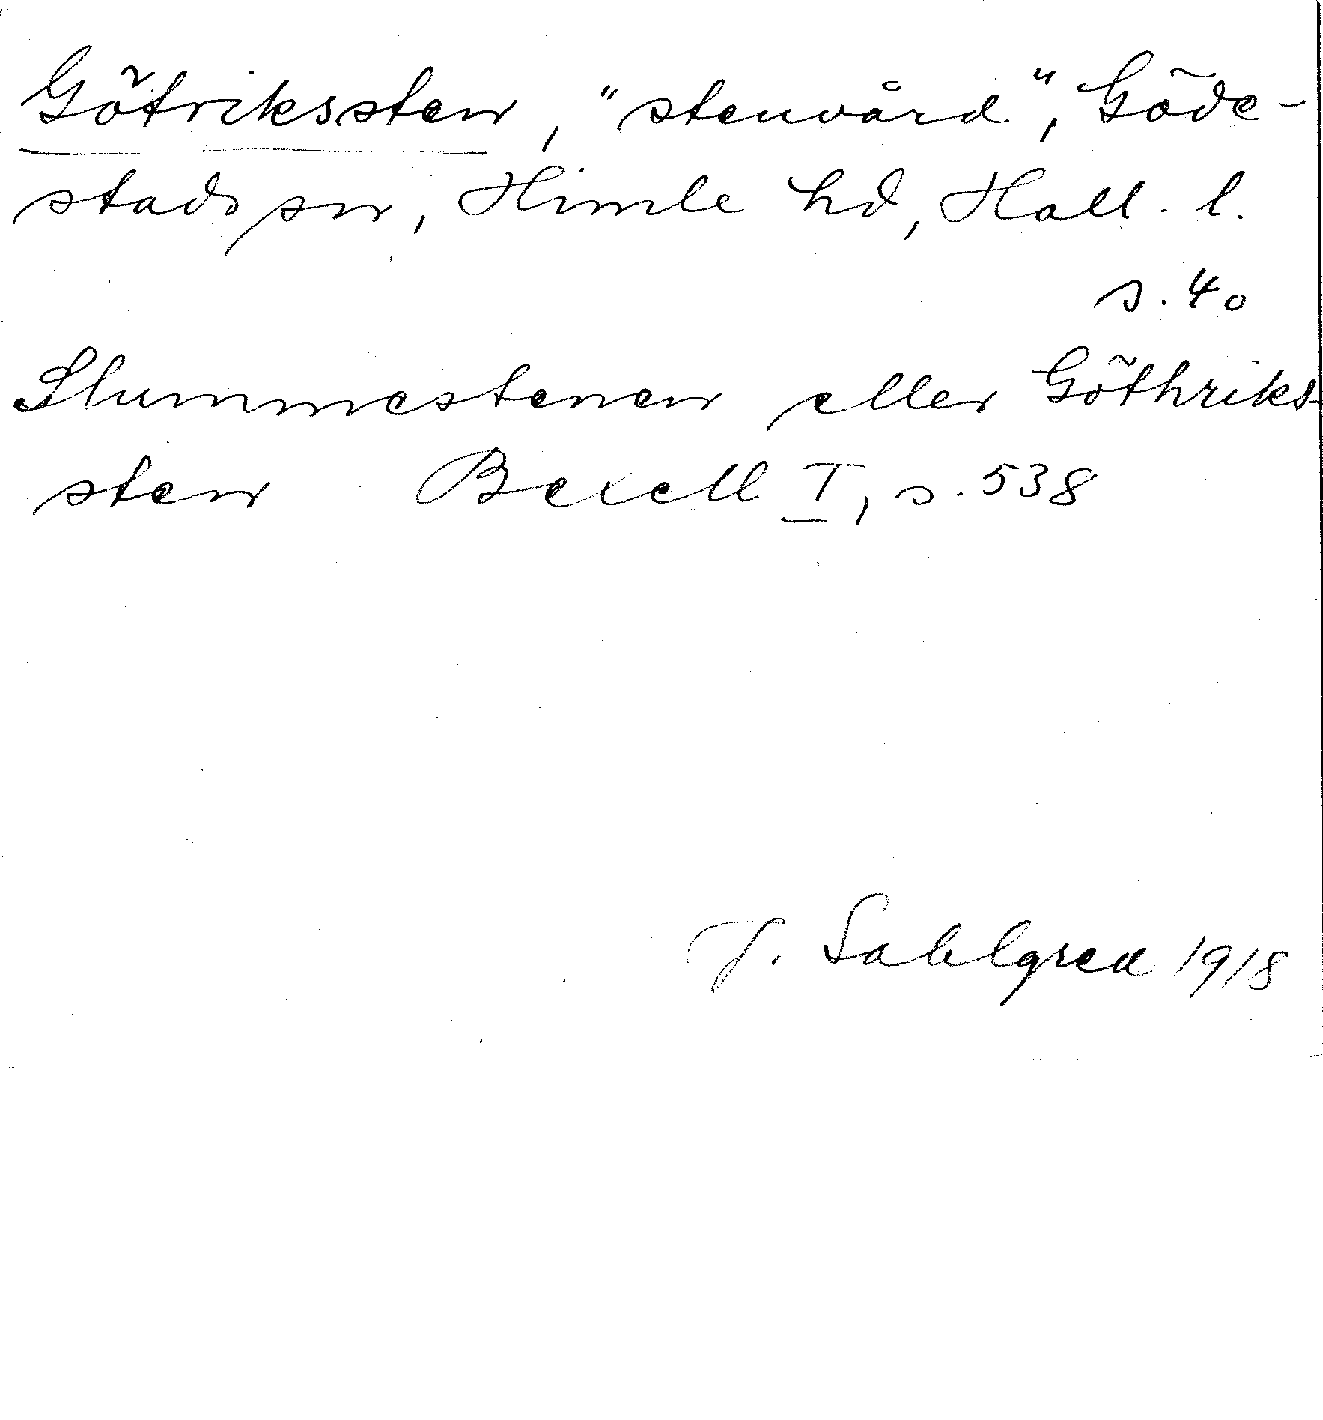 Götrikssten, "stenvård", Göde-
stads sn, Himle hd, Hall. l.
s. 40
Slummestenen eller Göthriks-
sten Bexell I, s. 538
J. Sahlgren 1918